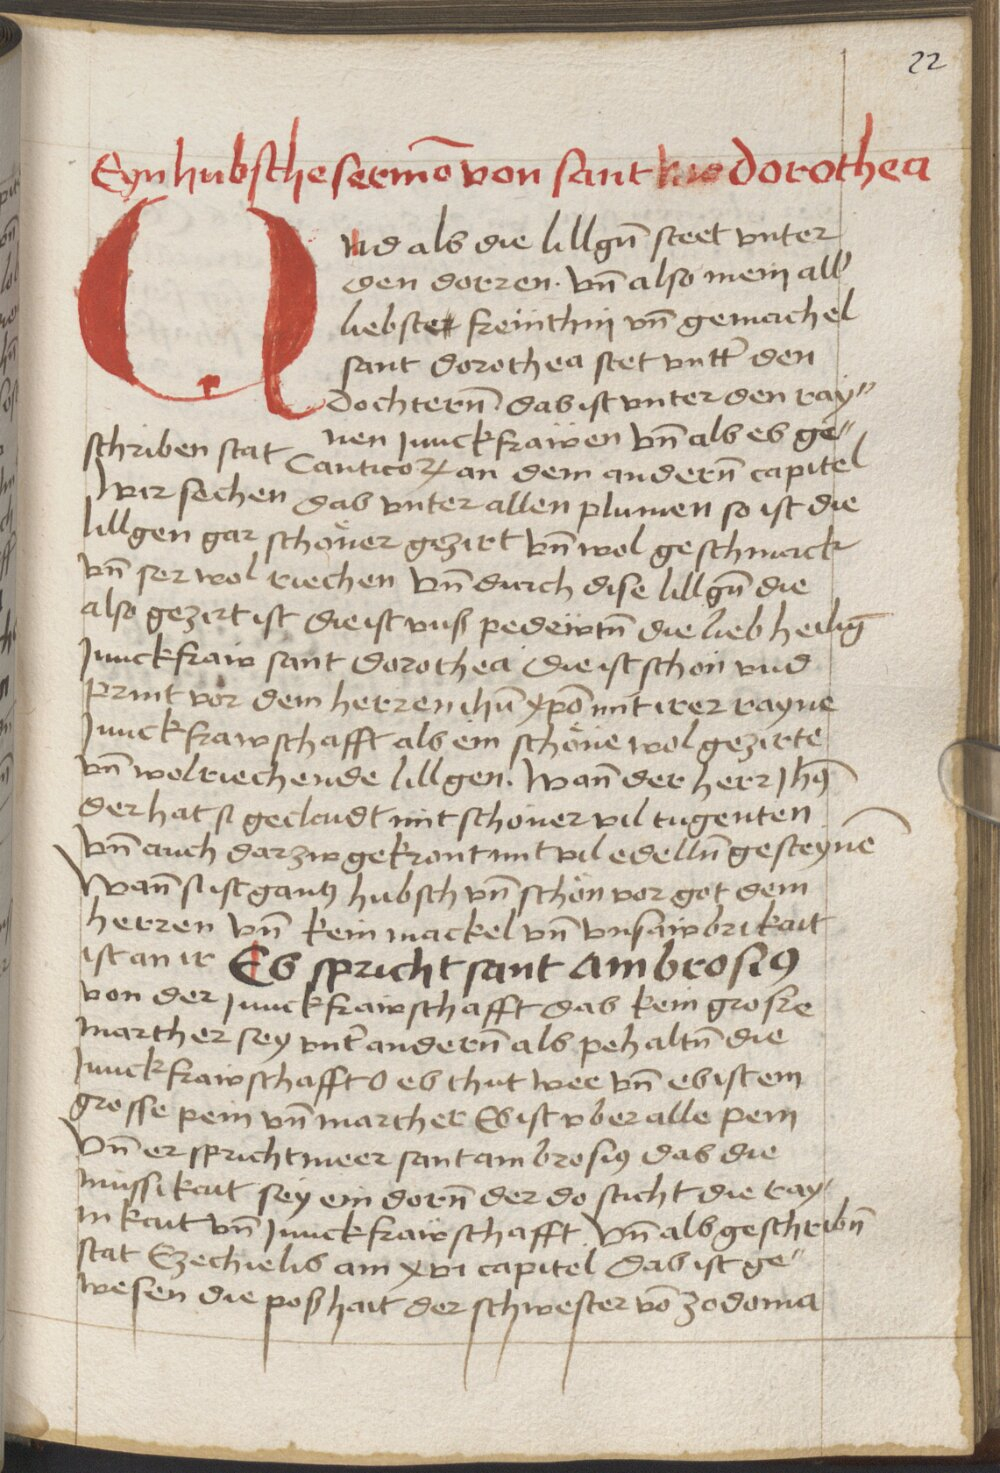 22
Eyn hubsche sermō von sant dorothea
Vnd als die lillgn̄ steet vnter
den dorren. vn̄ also mein all
liebste freinthin vn̄ gemachel
sant dorothea stet vntt̄ den
dochtern̄ das ist vnter den ray〃
nen junckfrawen vn̄ als es ge〃
schriben stat Canticoꝝ an dem andern̄ capitel
Wir sechen das vnter allen plumen so ist die
lillgen gar schöner gezirt vn̄ wol geschmack
vn̄ ser wol riechen vn̄ durch dise lillgn̄ die
also gezirt ist die ist vnß pedewtn̄ die lieb heiliḡ
junckfraw sant dorothea die ist schon vnd
print vor dem herren ihū xp̄o mit irer rayne
junckfrawschafft als ein schöne wol gezirte
vn̄ wolriechende lillgen. Wan̄ der herr Jhꝯ̄
der hat si gecleudt mit schoner vil tugenten
vn̄ auch darzw gekront mit vil edelln̄ gesteynē
Wan̄ si ist gantz hubsch vn̄ schön vor got dem
herren vn̄ kein mackel vn̄ vnsawbrikait
ist an ir Es spricht sant Ambrosiꝯ
von der junckfrawschafft das kein grosse
marther sey vnt̄ andern̄ als pehaltn̄ die
junckfrawschafft O es thut wee vn̄ es ist ein
grosse pein vn̄ marther Es ist vber alle pein
Vn̄ er spricht meer sant ambrosiꝯ das die
mussikait sey ein dorn̄ der do sticht die ray〃
nikait vn̄ junckfrawschafft Vn̄ als geschribn̄
stat Ezechielis am xvi capitel Das ist ge〃
wesen die poßhait der schwester vō zodoma